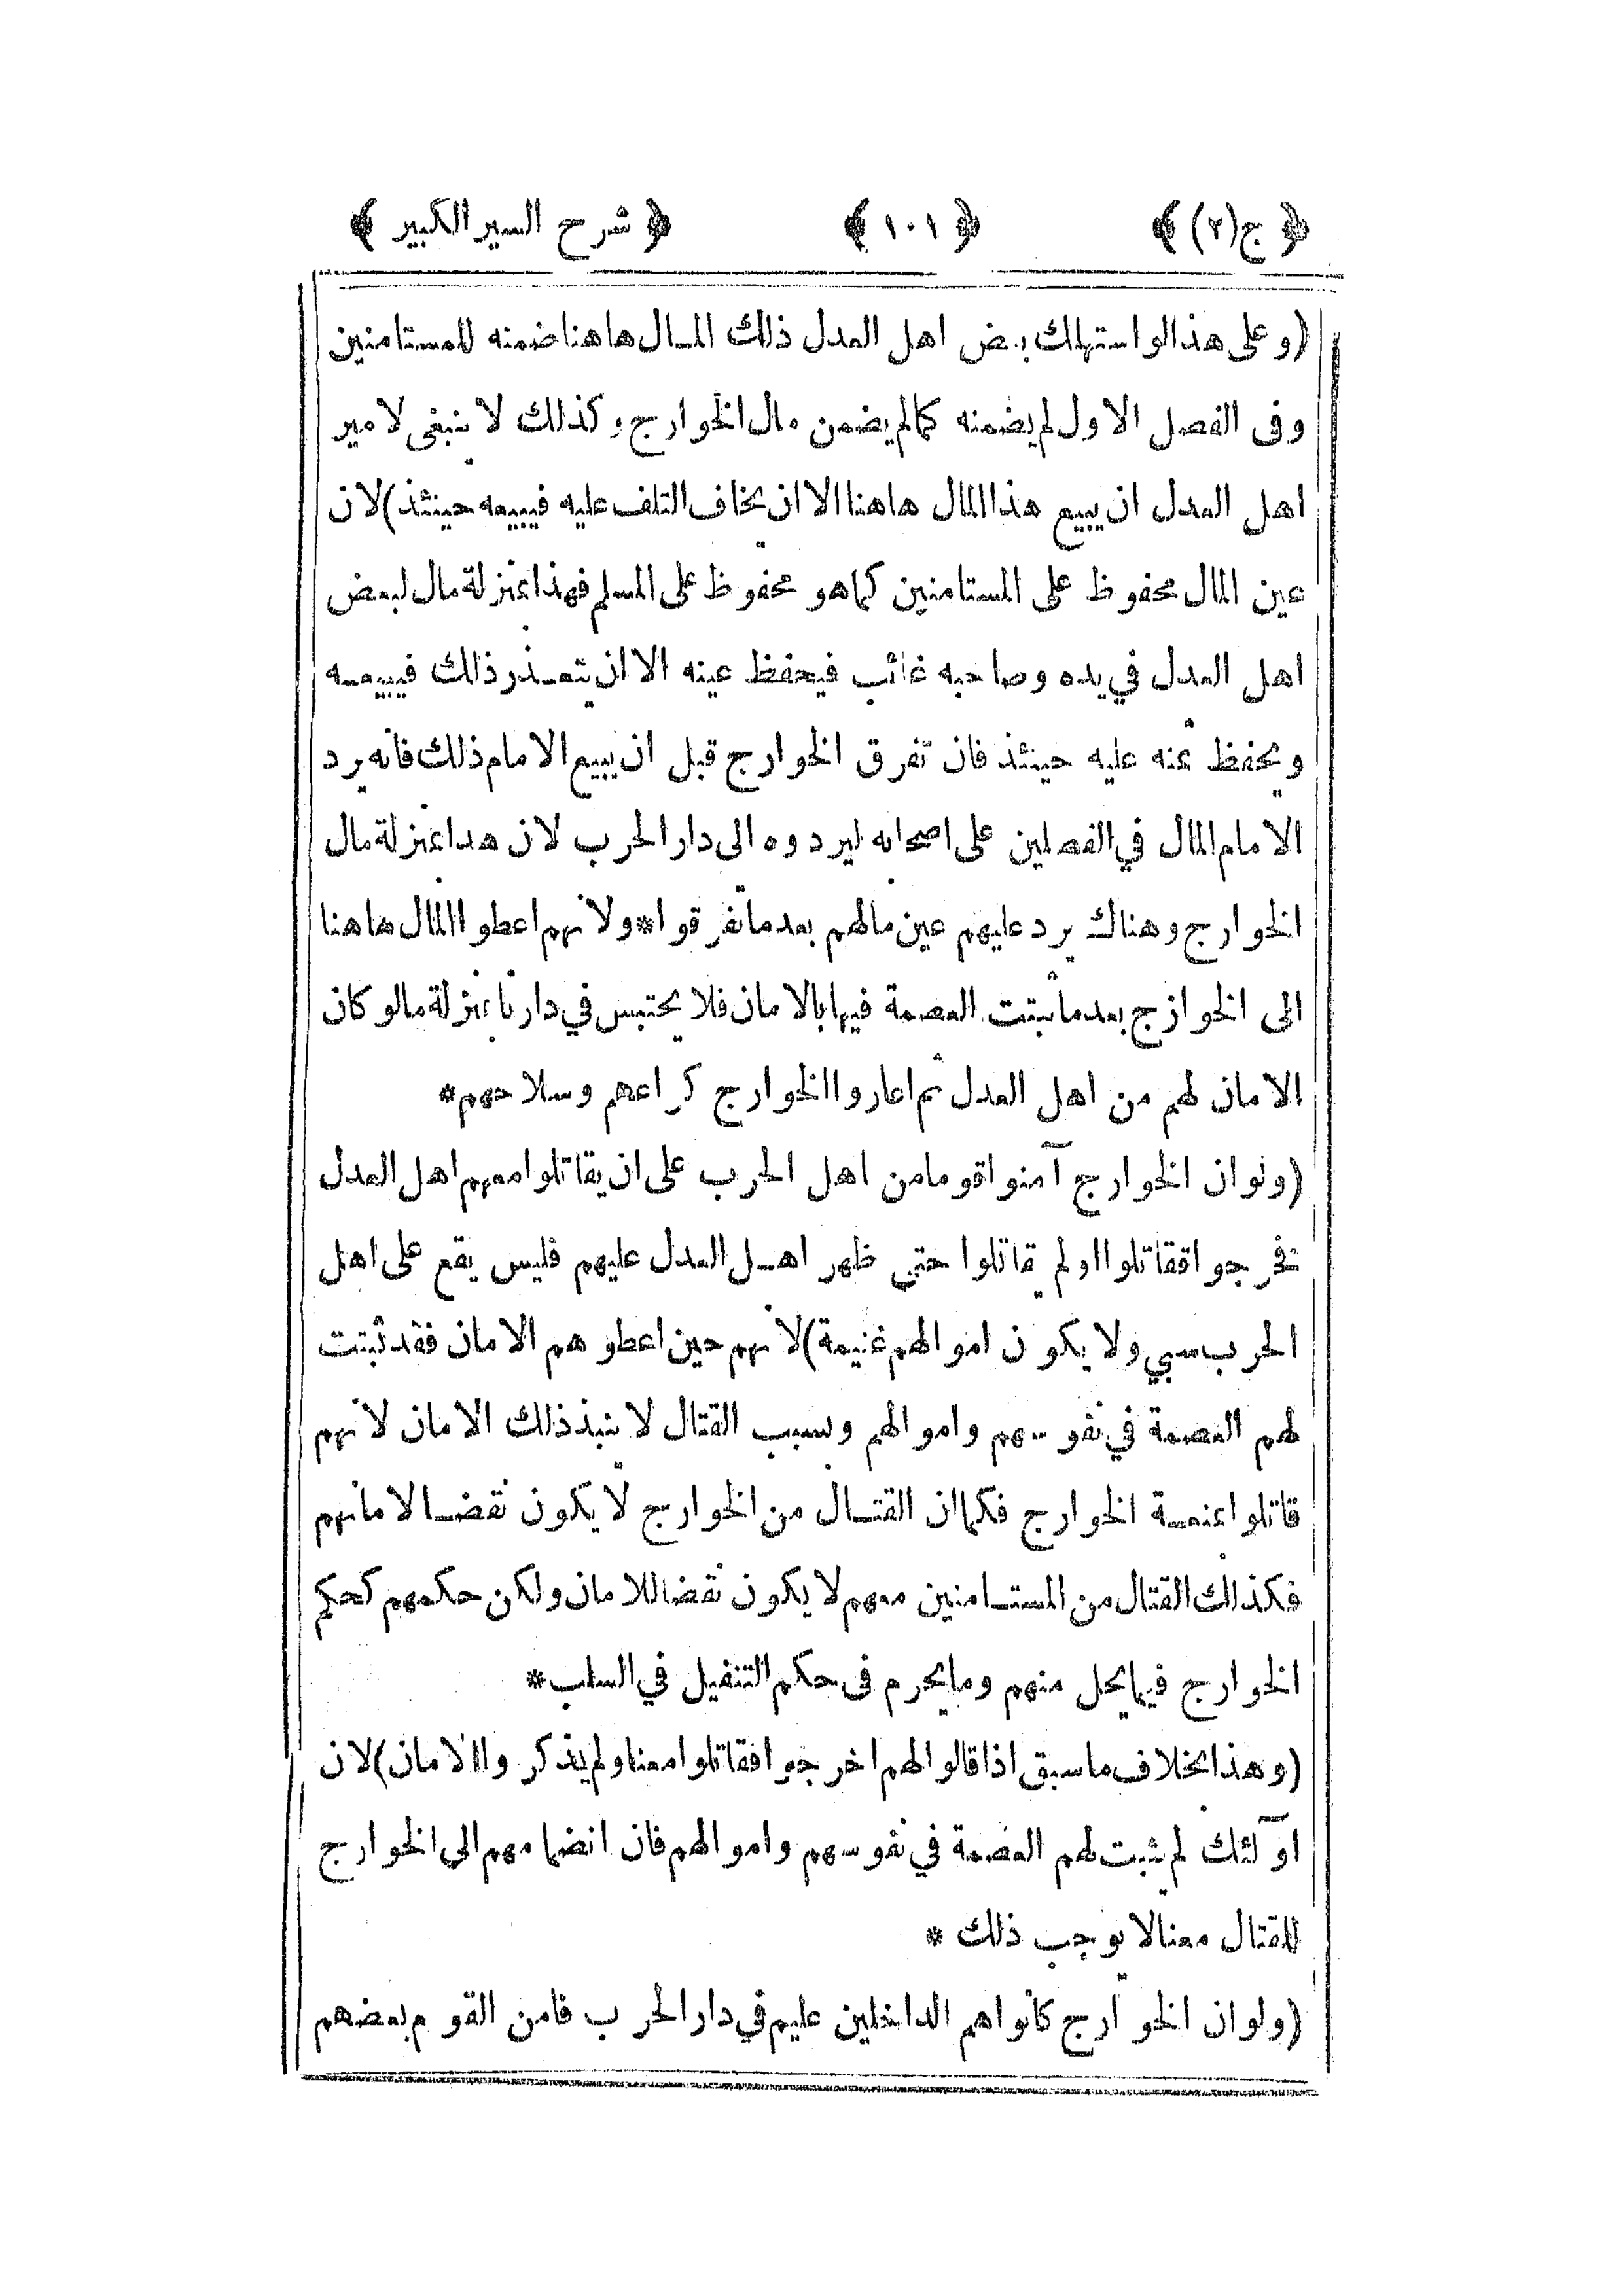 ﴿ ج(٢) ﴾ ﴿ ١٠١ ﴾ ﴿ شرح السير الكبير ﴾
(وعلى هذا لو استهلك بعض اهل العدل ذلك المال هاهنا ضمنه للمستامنين
وفى الفصل الاول لم يضمنه كما لم يضمن مال الخوارج وكذلك لا ينبغى لامير
اهل العدل ان يبيع هذا المال هاهنا الا ان يخاف التلف عليه فيبيعه حينئذ) لان
عين المال محفوظ على المستامنين كما هو محفوظ على المسلم فهذا بمنزلة مال لبعض
اهل العدل في يده وصاحبه غائب فيحفظ عينه الا ان يتعذر ذلك فيبيعه
ويحفظ ثمنه عليه حينئذ فان تفرق الخوارج قبل ان يبيع الامام ذلك فانه يرد
الامام المال في الفصلين على اصحابه ليردوه الى دار الحرب لان هذا بمنزلة مال
الخوارج وهناك يرد عليهم عين مالهم بعد ما تفرقوا* ولانهم اعطوا المال هاهنا
الى الخوازج بعد ما ثبتت العصمة فيها بالامان فلا يحتبس في دارنا بمنزلة ما لو كان
الامان لهم من اهل العدل ثم اعاروا الخوارج كراعهم وسلاحهم*
(ولو ان الخوارج آمنوا قوما من اهل الحرب على ان يقاتلوا معهم اهل العدل
نخرجوا فقاتلوا او لم يقاتلوا حتى ظهر اهل العدل عليهم فليس يقع على اهل
الحرب سبي ولا يكون اموالهم غنيمة) لانهم حين اعطوهم الامان فقد ثبتت
لهم العصمة في نفوسهم واموالهم وبسبب القتال لا ينبذ ذلك الامان لانهم
قاتلوا بمنعة الخوارج فكما ان القتال من الخوارج لا يكون نقضا لامانهم
فكذلك القتال من المستامنين معهم لا يكون نقضا للامان ولكن حكمهم كحكم
الخوارج فيما يحل منهم وما يحرم فى حكم التنفيل في السلب*
(وهذا بخلاف ما سبق اذا قالوا لهم اخرجوا فقاتلوا معنا ولم يذكروا الامان) لان
اوآلئك لم يثبت لهم العصمة في نفوسهم واموالهم فان انضمامهم الى الخوارج
للقتال معنا لا يوجب ذلك *
(ولو ان الخوارج كانوا هم الداخلين عليهم في دار الحرب فامن القوم بعضهم